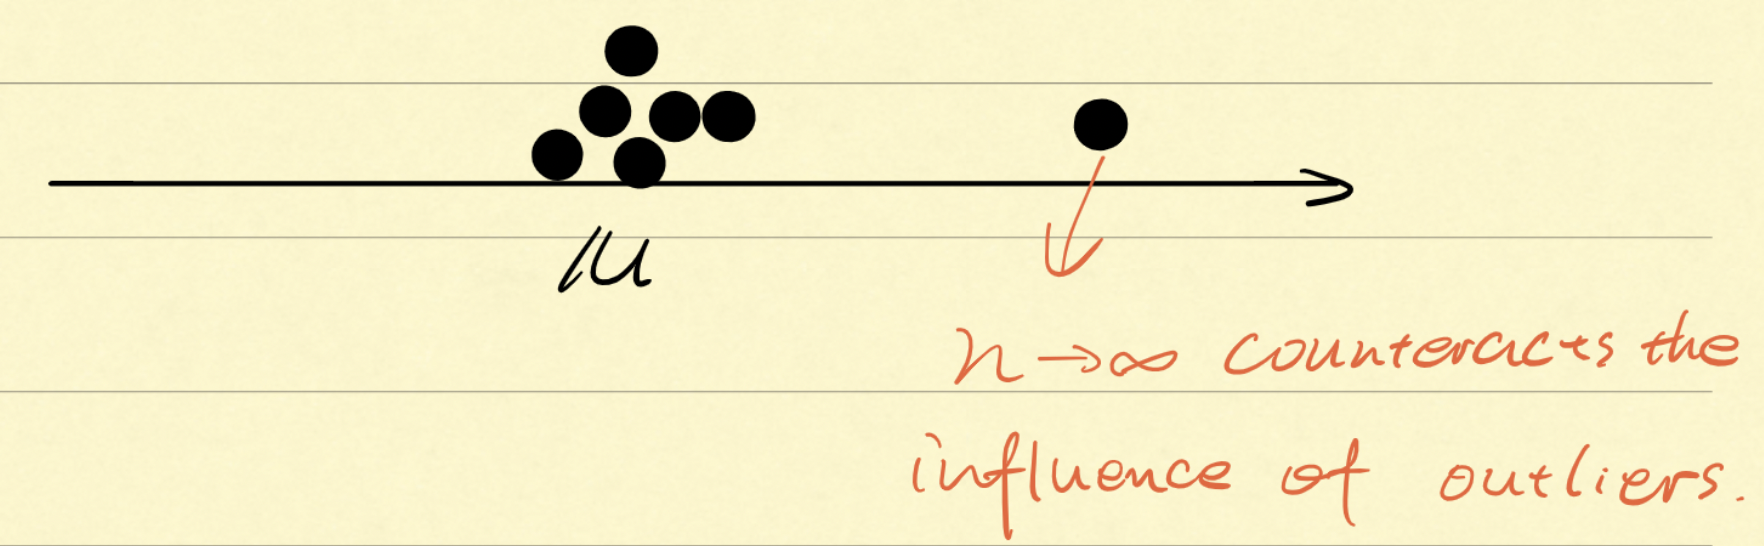 μ
n→∞ counteracts the
influence of outliers.